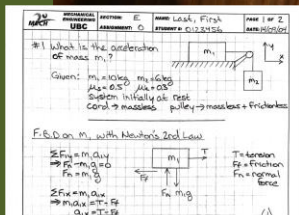 2ND MECH
MECHANICAL ENGINEERING UBC
SECTION: E
ASSIGNMENT: 0
NAME: Last, First
STUDENT #: 0123456
PAGE 1 OF 2
#1 What is the acceleration
of mass m₁?
Given: m₁=10kg m₂=6kg
μs=0.5 μk=0.3
system initially at rest
cord → massless pulley → massless + frictionless
m₁
m₂
y
x
F.B.D on m₁ with Newton's 2nd Law
ΣF₁y = m₁a₁y
⇒ Fn-m₁g=0
Fn=m₁g
ΣF₁x = m₁a₁x
⇒ m₁a₁x = T-Ff
a₁x = T-Ff
m₁
T
Ff
Fn m₁g
T=tension
Ff=friction
Fn=normal
force